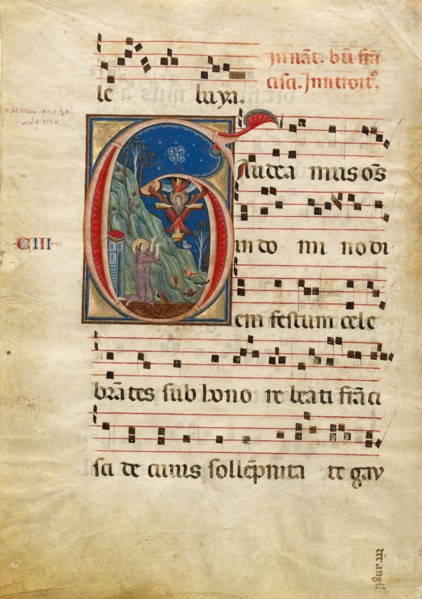 le luya.
In nat. bti fra
cisci. Introit9.
Gaudea mus oms
in do mi no di
em festum cele
brates sub hono re beati fraci
sci de cuius sollepnita te gau
CIII
tre angli